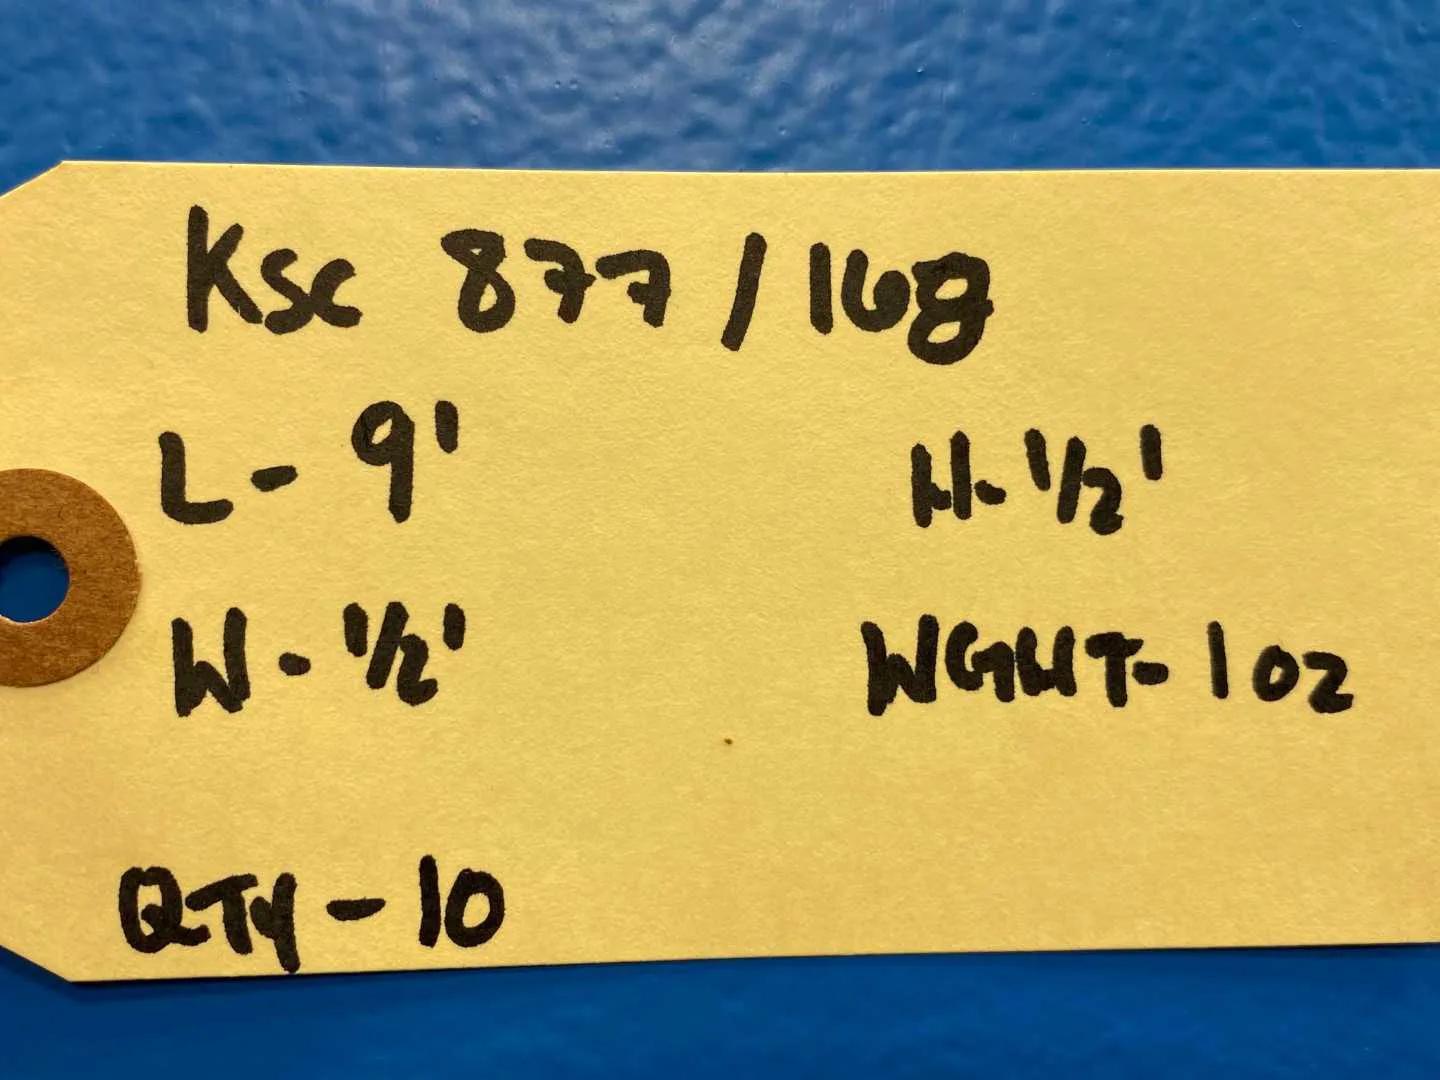 Ksc 877 / 168
L - 9' H - 1/2'
W - 1/2' WGHT - 1 oz
QTY - 10